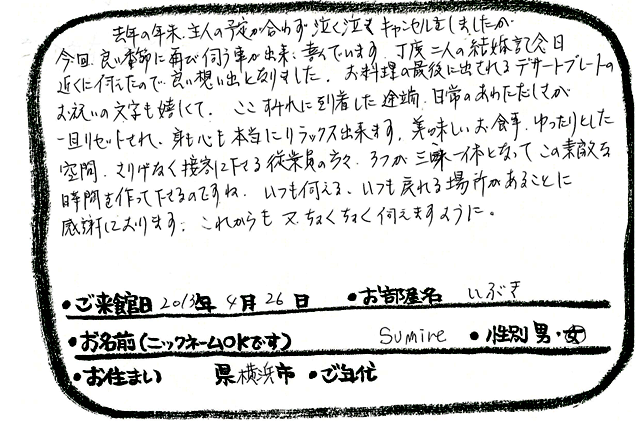 去年の年末、主人の予定が合わず泣く泣くキャンセルをしましたが
今回、良い季節に再び伺う事が出来、喜んでいます。丁度二人の結婚記念日
近くに伺えたので良い想い出となりました。お料理の最後に出されるデザートプレートの
お祝いの文字も嬉しくて。ここ すみれに到着した途端、日常のあわただしさが
一旦リセットされ、身も心も本当にリラックス出来ます。美味しいお食事、ゆったりとした
空間、さりげなく接客して下さる従業員の方々、3つが三味一体となってこの素敵な
時間を作って下さるのですね。いつも伺える、いつも戻れる場所があることに
感謝しております。これからも又、ちょくちょく伺えますように。
•ご来館日 2013年 4月 26日 •お部屋名 いぶき
•お名前(ニックネームOKです) Sumire •性別 男・女
•お住まい 県横浜市 •ご年代